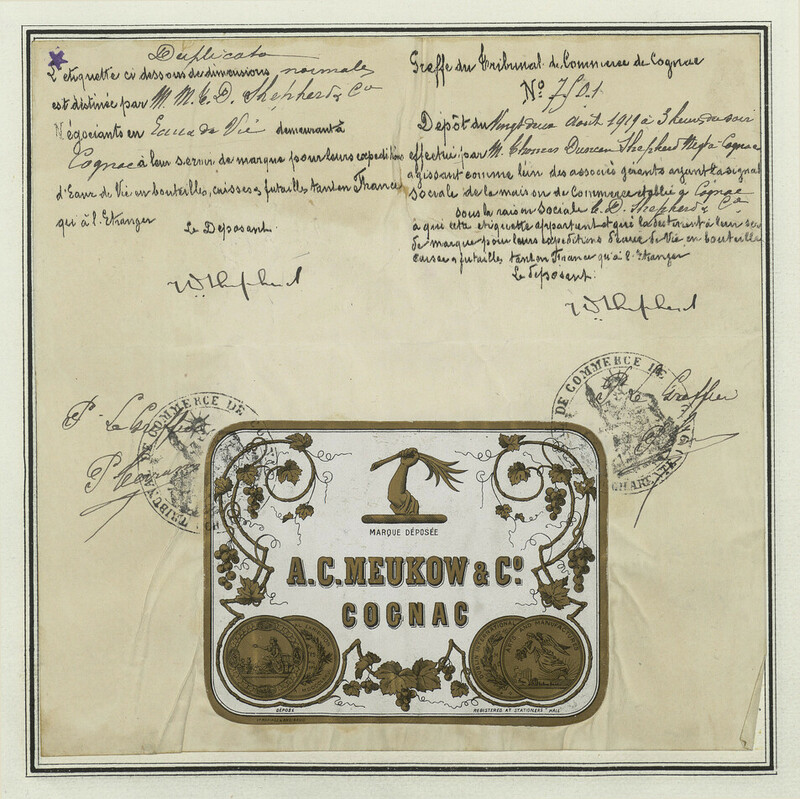 Duplicata
L'etiquette ci dessous de dimensions normales
est destinée par M. M. C. D. Shepherd & Cie
Négociants en Eaux de Vie demeurant à
Cognac à leur servir de marque pour leurs expeditions
d'Eaux de Vie en bouteilles, caisses & futailles tant en France
qu'à l'Etranger
Le Deposant
T D Shepherd
Greffe du Tribunal de Commerce de Cognac
No 7501
Dépôt du Vingt deux Août 1919 à 3 heures du soir
effectué par M. Thomas Duncan Shepherd Negt à Cognac
agissant comme l'un des associés gérants ayant la signat
sociale de la maison de Commerce etablie à Cognac
sous la raison sociale C. D. Shepherd & Cie
à qui cette etiquette appartient et qui la destinent à leur ser
de marque pour leurs expéditions d'eaux de Vie en bouteille
caisses & futailles tant en France qu'à l'Etranger
Le deposant:
T D Shepherd
P. Le Greffier
TRIBUNAL DE COMMERCE DE
P. Le Greffier
DE COMMERCE DE
CHARENTE
MARQUE DÉPOSÉE
A.C. MEUKOW & Co.
COGNAC
INTERNATIONAL
ARTS AND MANUFACTURES
DÉPOSÉ
REGISTERED AT STATIONERS' HALL